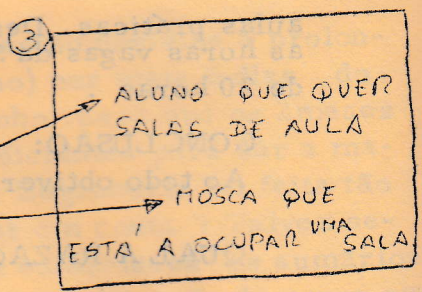 3
ALUNO QUE QUER
SALAS DE AULA
MOSCA QUE
ESTÁ A OCUPAR UMA SALA